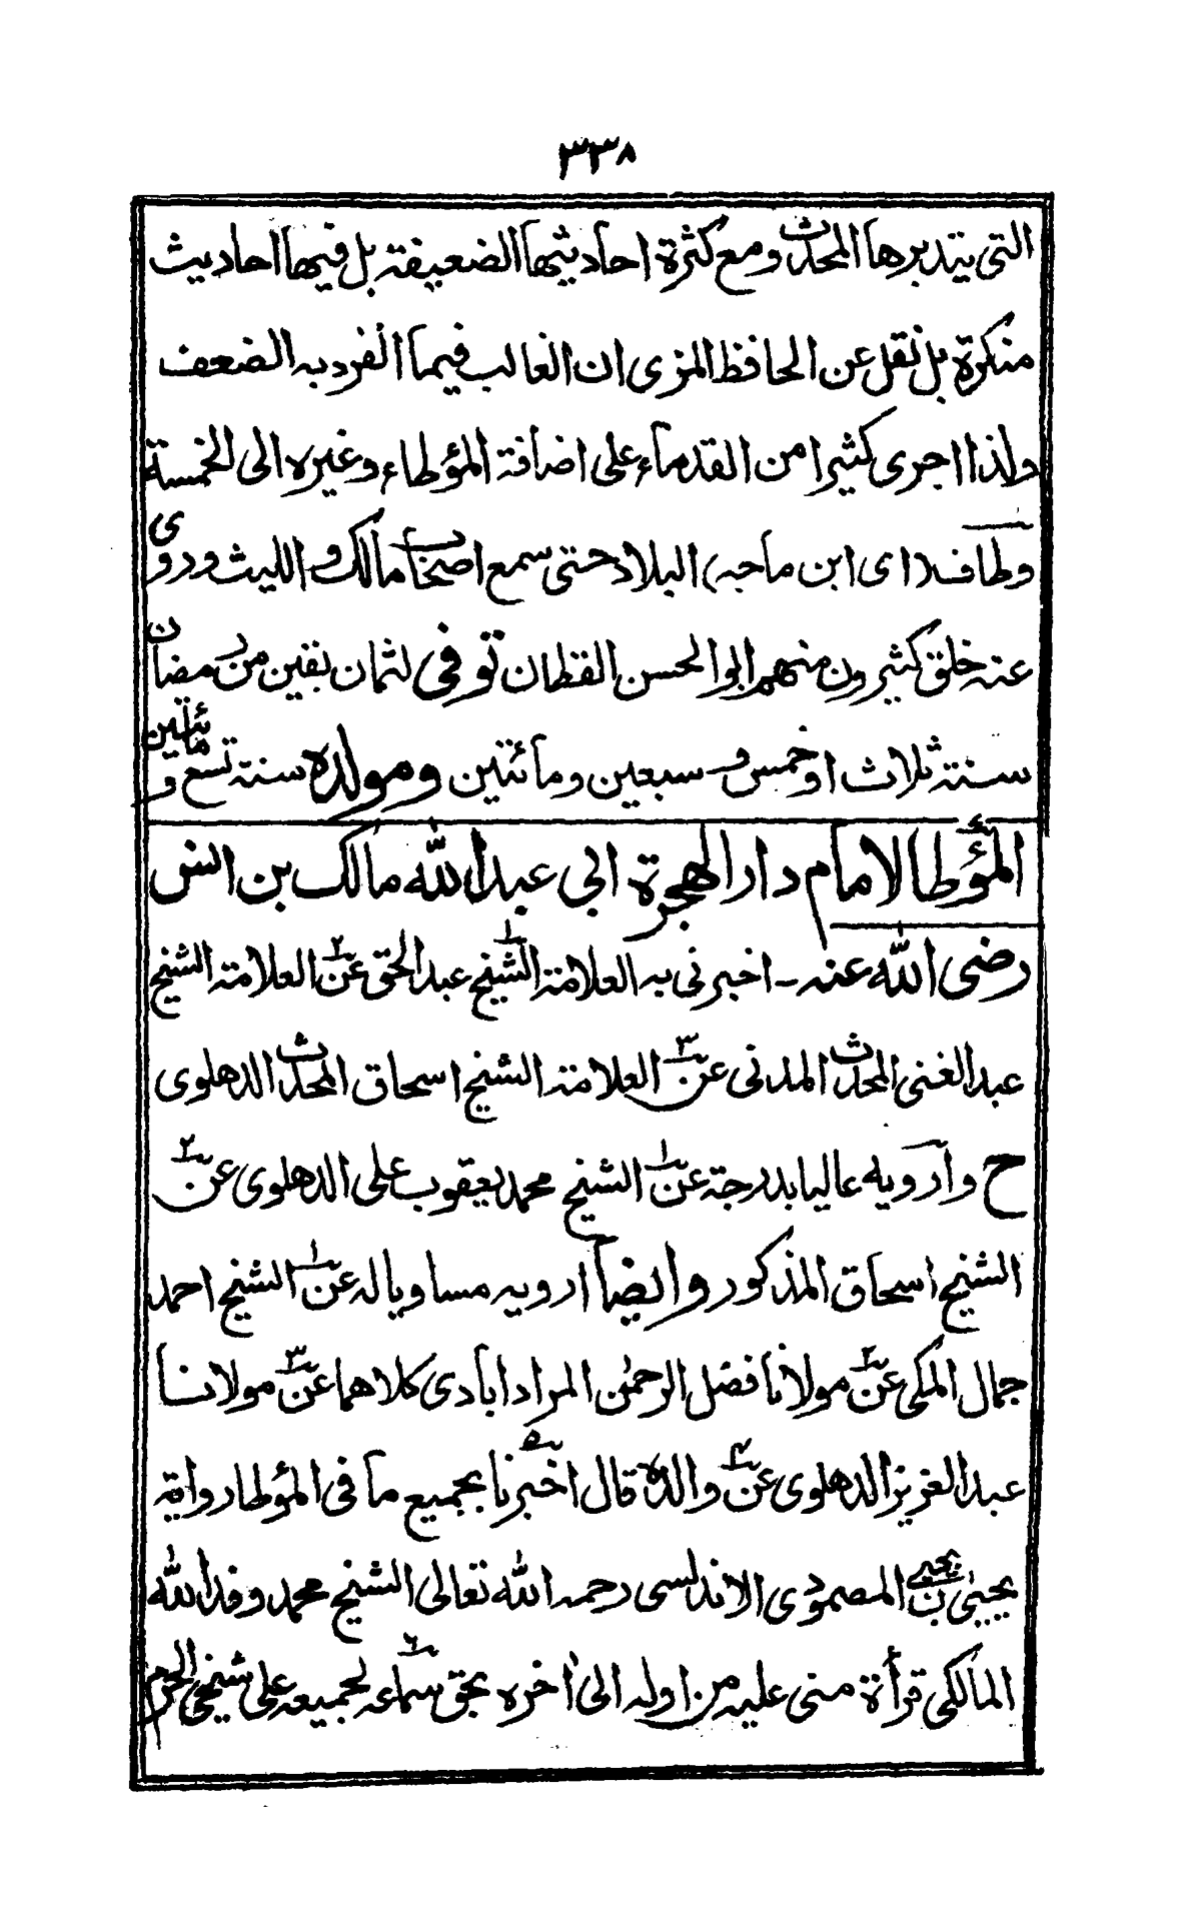 ٣٣٨
التى يتدبرها المحدث ومع كثرة احاديثها الضعيفة بل فيها احاديث
منكرة بل نقل عن الحافظ المزى ان الغالب فيما انفرد به الضعف
ولذا اجرى كثيرا من القدماء على اضافة المؤطاء وغيره الى الخمسة
وطاف (اى ابن ماجه) البلاد حتى سمع اصحاب مالك و الليث وروى
عنه خلق كثيرون منهم ابو الحسن القطان توفى لثمان بقين من رمضان
سنة ثلاث او خمس و سبعين ومائتين ومولده سنة تسع و مائتين
المؤطا لامام دار الهجرة ابى عبد الله مالك بن انس
رضى الله عنه ـ اخبرنى به العلامة الشيخ ١ عبد الحق عن ٢ العلامة الشيخ
عبد الغنى المحدث المدنى عن ٣ العلامة الشيخ اسحاق المحدث الدهلوى
ح وأرويه عاليا بدرجة عن ١ الشيخ محمد يعقوب على الدهلوى عن ٢
الشيخ اسحاق المذكور وايضا ارويه مساويا له عن ١ الشيخ احمد
جمال المكى عن ٢ مولانا فضل الرحمن المراد ابادى كلاهما عن ٣ مولانا
عبد العزيز الدهلوى عن ٤ والده قال اخبرنا ٥ بجميع ما فى المؤطا رواية
يحيى بن يحيى المصمودى الاندلسى رحمه الله تعالى الشيخ محمد وفد الله
المالكى قرأة منى عليه من اوله الى اخره بحق سماعه ٦ لجميعه على شيخى الحرم